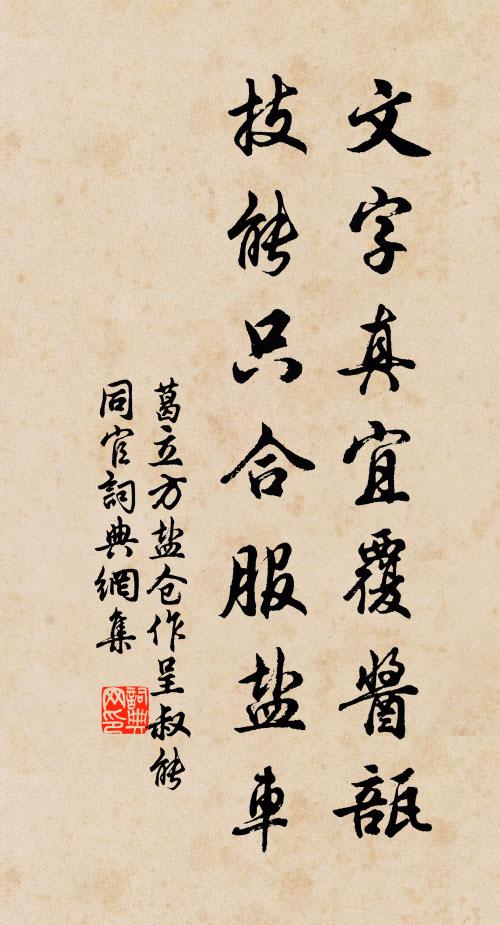 文字真宜覆醬瓿
技能只合服盐車
葛立方盐仓作呈叔能
同官詞典網集
詞典
网印